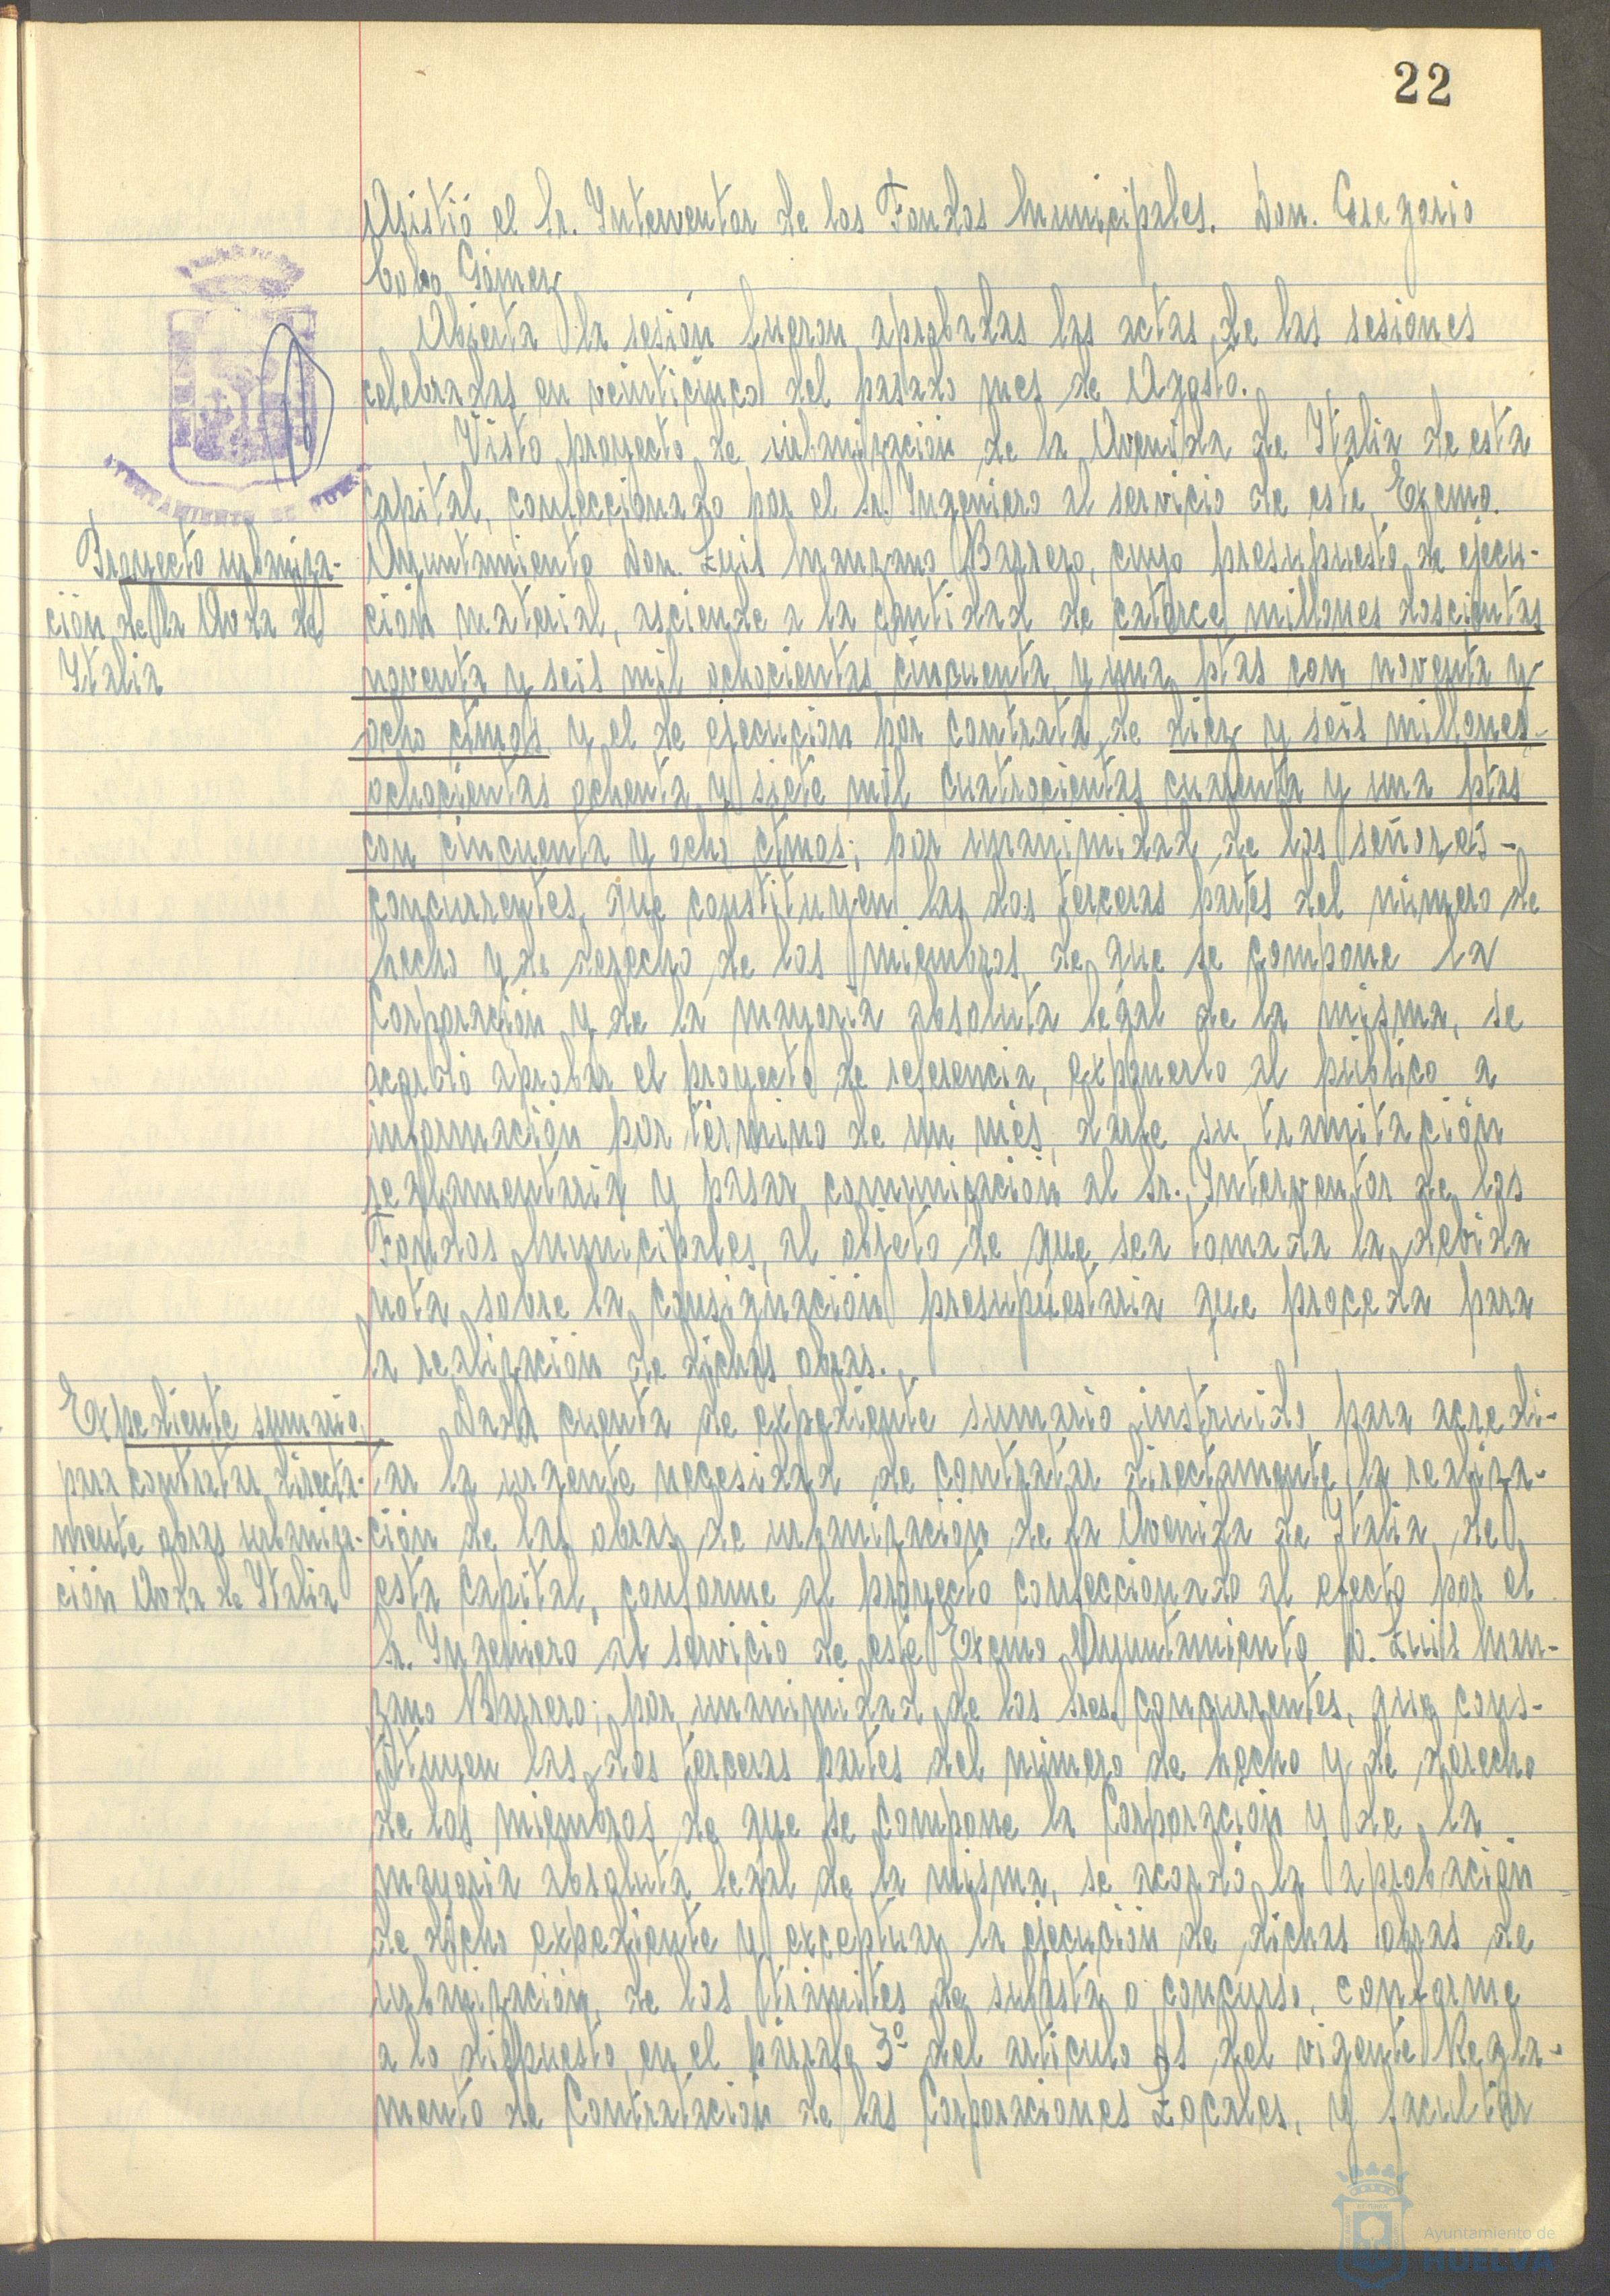 22
Asistió el Sr. Interventor de los Fondos Municipales. Don. Gregorio
Gómez
Abierta la sesión fueron aprobadas las actas de las sesiones
celebradas en veinticinco del pasado mes de Agosto.
Visto proyecto de urbanización de la Avenida de Italia de esta
Capital, confeccionado por el Sr. Ingeniero al servicio de este Excmo.
Proyecto urbaniza-
ción de la Avda de
Italia
Ayuntamiento Don. Luis Manzano Barrero, cuyo presupuesto de ejecu-
ción material, asciende a la cantidad de catorce millones doscientas
noventa y seis mil ochocientas cincuenta y una ptas con noventa y
ocho ctmos y el de ejecución por contrata de diez y seis millones-
ochocientas ochenta y siete mil cuatrocientas cuarenta y una ptas
con cincuenta y ocho ctmos; por unanimidad de los señores-
concurrentes, que constituyen las dos terceras partes del número de
hecho y de derecho de los miembros de que se compone la
Corporación y de la mayoría absoluta legal de la misma, se
acordó aprobar el proyecto de referencia, exponerlo al público a
información por término de un mes, darle su tramitación
reglamentaria y pasar comunicación al Sr. Interventor de los
Fondos Municipales, al objeto de que sea tomada la debida
nota sobre la consignación presupuestaria que proceda para
la realización de dichas obras.
Expediente sumario
para contratar directa-
mente obras urbaniza-
ción Avda de Italia
Dada cuenta de expediente sumario instruido para acredi-
tar la urgente necesidad de contratar directamente la realiza-
ción de las obras de urbanización de la Avenida de Italia de
esta Capital, conforme al proyecto confeccionado al efecto por el
Sr. Ingeniero al servicio de este Excmo Ayuntamiento D. Luis Man-
zano Barrero; por unanimidad de los Sres. concurrentes, que cons-
tituyen las dos terceras partes del número de hecho y de derecho
de los miembros de que se compone la Corporación y de la
mayoría absoluta legal de la misma, se acordó la aprobación
de dicho expediente y exceptuar la ejecución de dichas obras de
urbanización, de los trámites de subasta o concurso, conforme
a lo dispuesto en el párrafo 3º del artículo del vigente Regla-
mento de Contratación de las Corporaciones Locales, y facultar
Ayuntamiento de
HUELVA